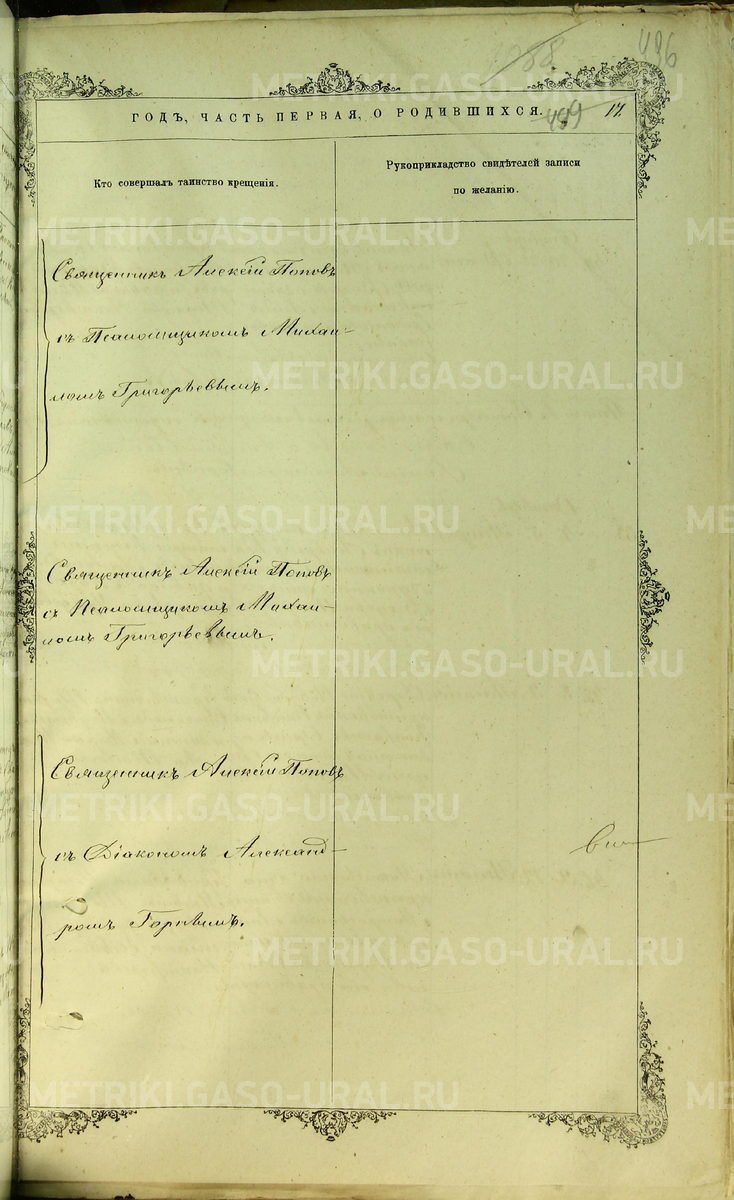 1088
496
ГОДЪ, ЧАСТЬ ПЕРВАЯ, О РОДИВШИХСЯ.
499
17.
Кто совершалъ таинство крещенія.
Рукоприкладство свидѣтелей записи
по желанію.
Священникъ Алексій Поповъ
съ Псаломщикомъ Михаи-
ломъ Григорьевымъ.
Священникъ Алексій Поповъ
съ Псаломщикомъ Михаи-
ломъ Григорьевымъ.
Священникъ Алексій Поповъ
съ Діакономъ Александ-
ромъ Горнымъ.
METRIKI.GASO-URAL.RU